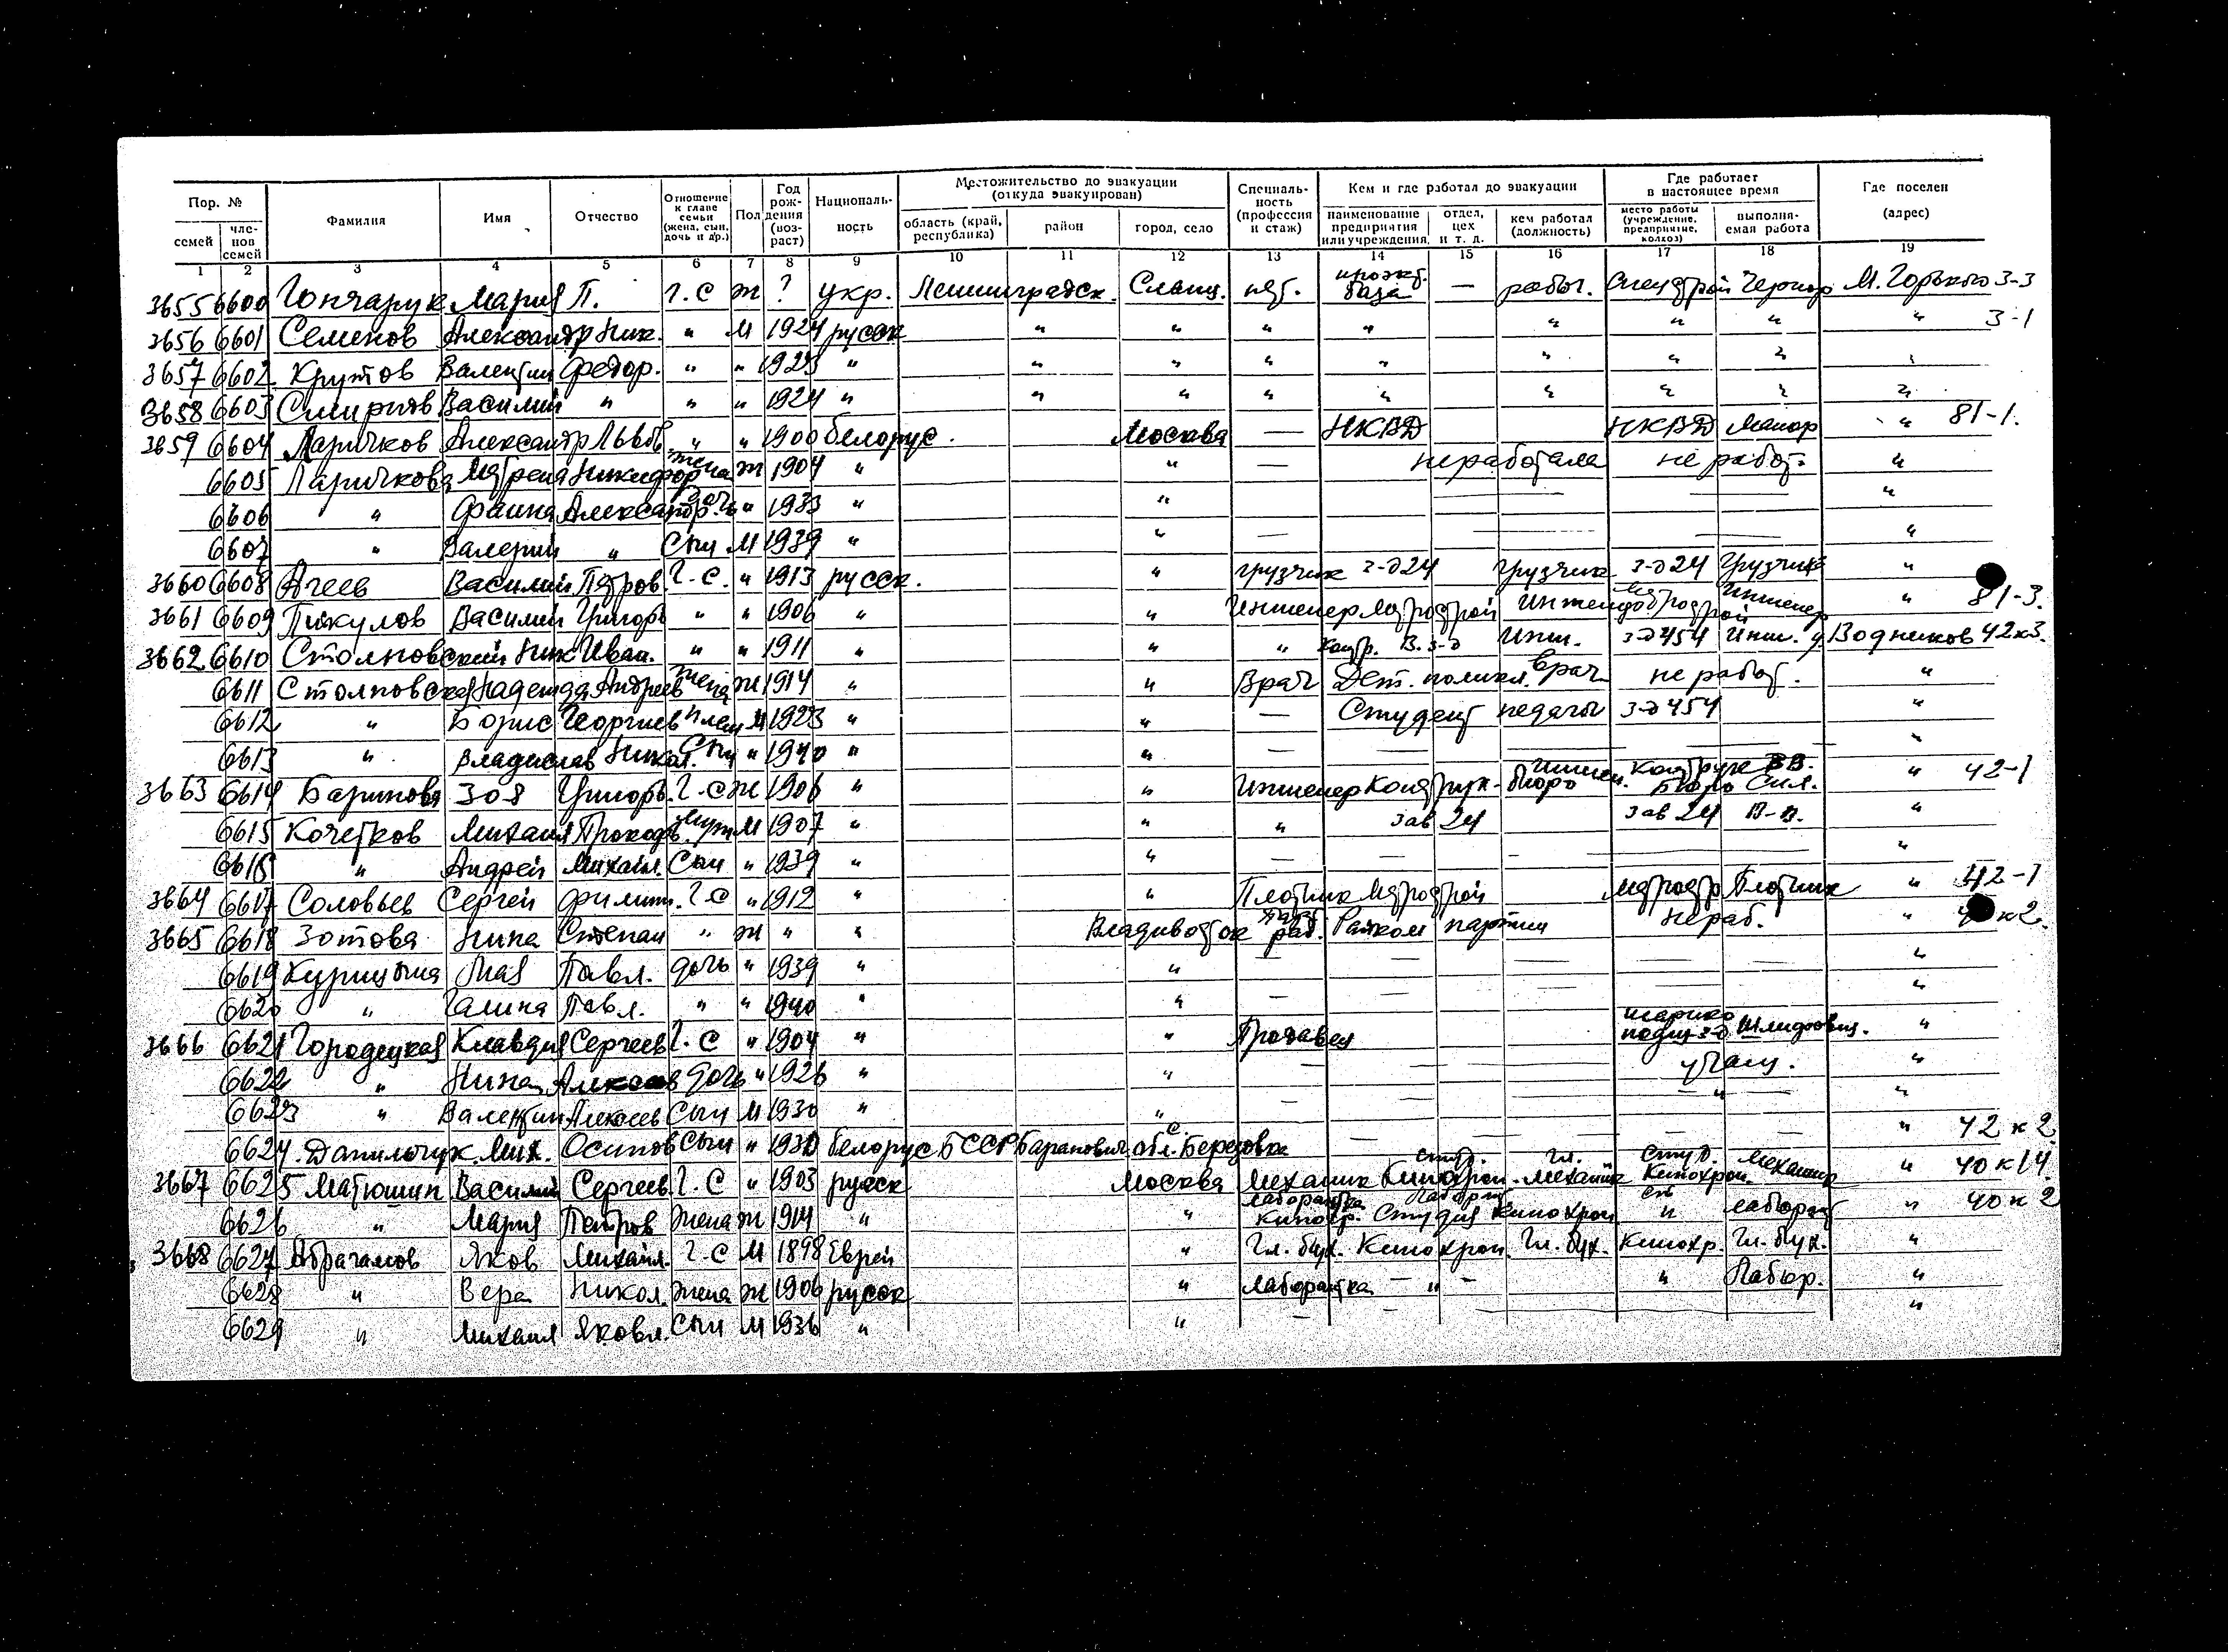 Пор. № Фамилия Имя Отчество Отношение к главе семьи (жена, сын, дочь и др.) Пол Год рождения (возраст) Националь-ность Местожительство до эвакуации (откуда эвакуирован) Специаль-ность (профессия и стаж) Кем и где работал до эвакуации Где работает в настоящее время Где поселен (адрес)
семей чле-нов семей область (край, республика) район город, село наименование предприятия или учреждения отдел, цех и т. д. кем работал (должность) место работы (учреждение, предприятие, колхоз) выполня-емая работа
1 2 3 4 5 6 7 8 9 10 11 12 13 14 15 16 17 18 19
3655 6600 Гончарук Мария П. Г.С Ж ? укр. Ленинградск. Сланц. нет. база — работ. М. Горького 3-3
3656 6601 Семенов Александр Ник. " М 1924 русск " " " " " " " " 3-1
3657 6602 Крутов Валентин Федор. " " 1923 " " " " " " " " "
3658 6603 Смирнов Василий " " " 1924 " " " " " " " " "
3659 6604 Ларичков Александр Львов. " " 1900 белорус. Москва — НКВД НКВД " 81-1.
6605 Ларичкова Матрена Никифор жена Ж 1904 " " — не работала не работ. "
6606 " Фаина Александр. дочь " 1933 " " "
6607 " Валерий " Сын М 1939 " " — "
3660 6608 Агеев Василий Петров. Г.С. " 1913 русск. " грузчик з-д 24 грузчик з-д 24 Грузчик "
3661 6609 Пикулов Василий Григорь " " 1906 " " Инженер Метрострой Инжен Метрострой Инженер " 81-3.
3662 6610 Столповский Ник Иван. " " 1911 " " " В. з-д Инж. з-д 454 Инж. у. Водников 42к3.
6611 Столповская Надежда Андреев жена Ж 1914 " " Врач Дет. поликл. врач не работ. "
6612 " Борис Георгиев плем М 1923 " " — Студент педагог з-д 454 "
6613 " Владислав Никол. Сын " 1940 " " — "
3663 6614 Баринова Зоя Григорь. Г.С Ж 1906 " " Инженер Конструк. бюро инжен. Конструк Бюро " 42-1
6615 Кочетков Михаил Прокоф. муж М 1907 " " " зав 24 зав 24 "
6616 " Андрей Михаил. Сын " 1939 " " — "
3664 6617 Соловьев Сергей Филип. Г.С " 1912 " " Плотник Метрострой Метростр Плотник " 42-1
3665 6618 Зотова Нина Степан " Ж " " Владивосток парт. раб. Райком партии не раб. " к2.
6619 Курицына Мая Павл. дочь " 1939 " " — "
6620 " Галина Павл. " " 1940 " " — "
3666 6621 Городецкая Клавдия Сергеев Г.С " 1904 " " Продавец шарико подш з-д Шлифовщ. "
6622 " Нина Алексеев дочь " 1926 " " — учащ. "
6623 " Валентин Алексеев Сын М 1930 " " — " "
6624 Данильчук. Мих. Осипов Сын " 1930 белорус БССР Баранович обл. с. Березовка " 42 к 2
3667 6625 Матюшин Василий Сергеев. Г.С " 1903 русск Москва Механик студ. Кинохрон. гл. механик студ. Кинохрон. механик " 40 к 14
6626 " Мария Петров жена Ж 1914 " " лаборантка кинохр. Студия кинохрон лаборант " лаборант " 40 к 2
3668 6627 Абрагамов Яков Михайл. Г.С М 1898 Еврей " Гл. бух. Кинохрон. Гл. бух. Кинохр. Гл. бух. "
6628 " Вера Никол. жена Ж 1906 русск " лаборантка — " — " Лабор. "
6629 " Михаил Яковл. Сын М 1936 " " — "